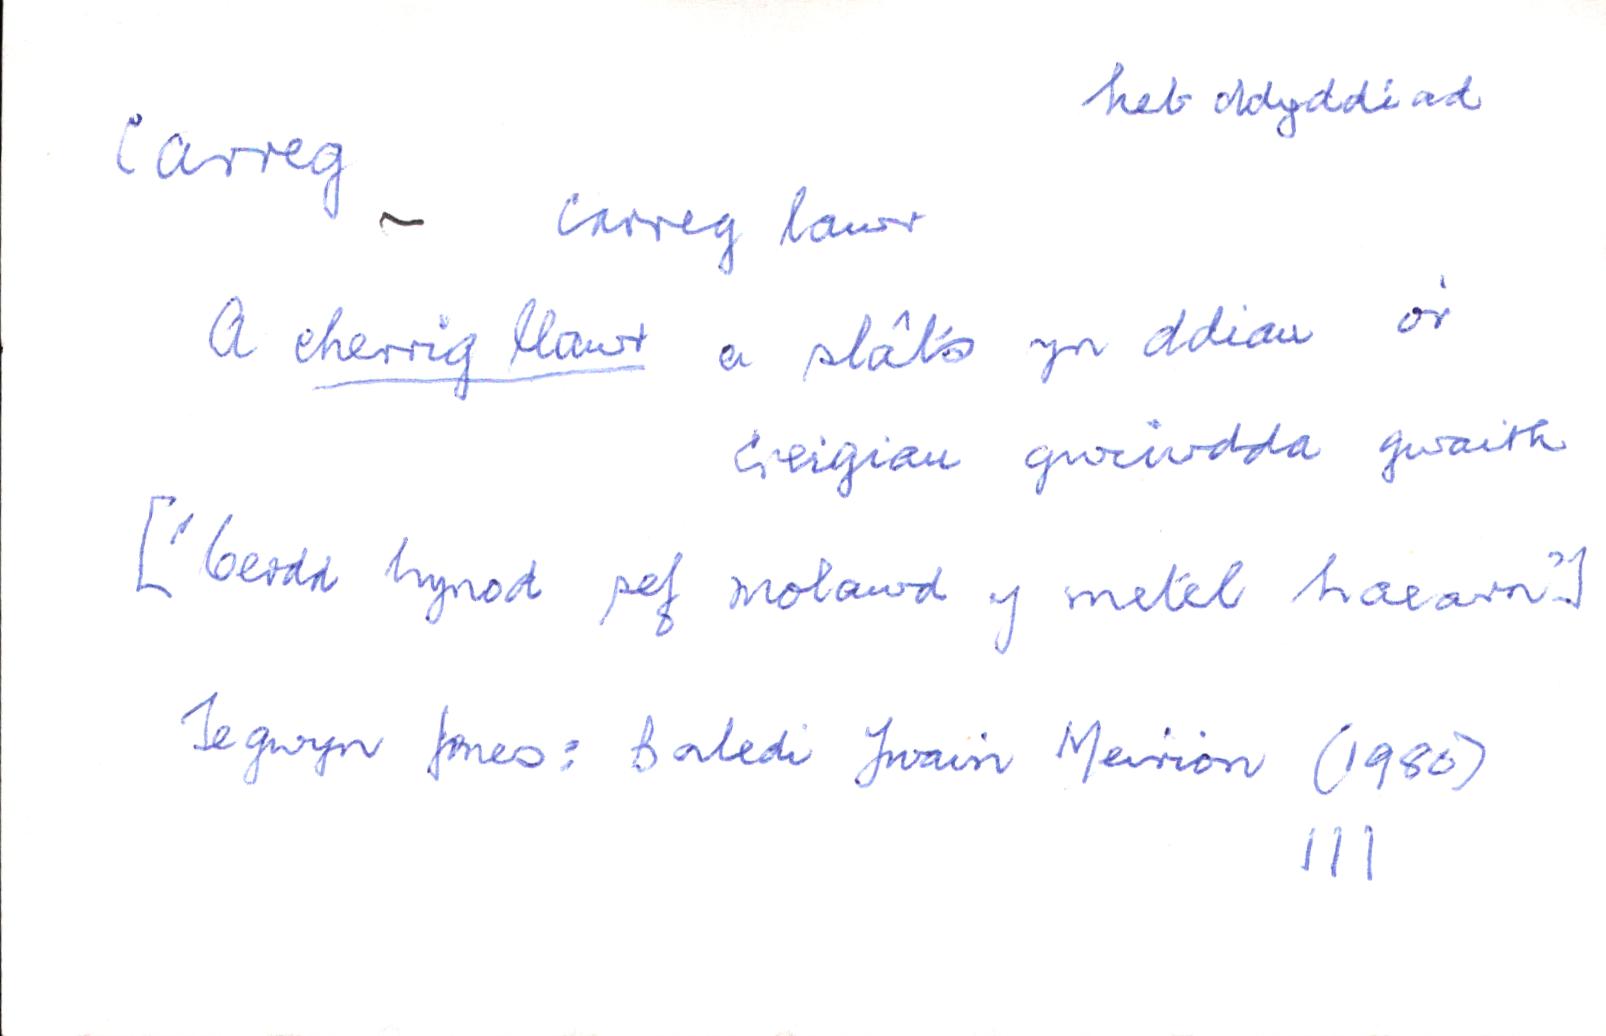 heb ddyddiad
Carreg
~ carreg lawr
A cherrig llawr a slâts yn ddiau o'r
creigiau gwiwdda gwaith
['Cerdd hynod sef molawd y metel haearn']
Tegwyn Jones: Baledi Ywain Meirion (1980)
111